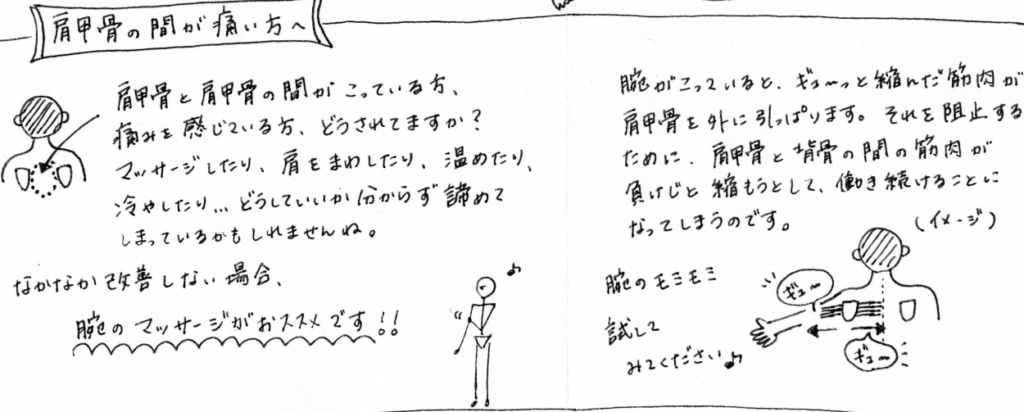 肩甲骨の間が痛い方へ
肩甲骨と肩甲骨の間がこっている方、
痛みを感じている方、どうされてますか？
マッサージしたり、肩をまわしたり、温めたり、
冷やしたり...どうしていいか分からず諦めて
しまっているかもしれませんね。
なかなか改善しない場合、
腕のマッサージがおススメです!!
腕がこっていると、ギューっと縮んだ筋肉が
肩甲骨を外に引っぱります。それを阻止する
ために、肩甲骨と背骨の間の筋肉が
負けじと縮もうとして、働き続けることに
なってしまうのです。
(イメージ)
腕のモミモミ
試して
みてください♪
ギュ〜
ギュ〜